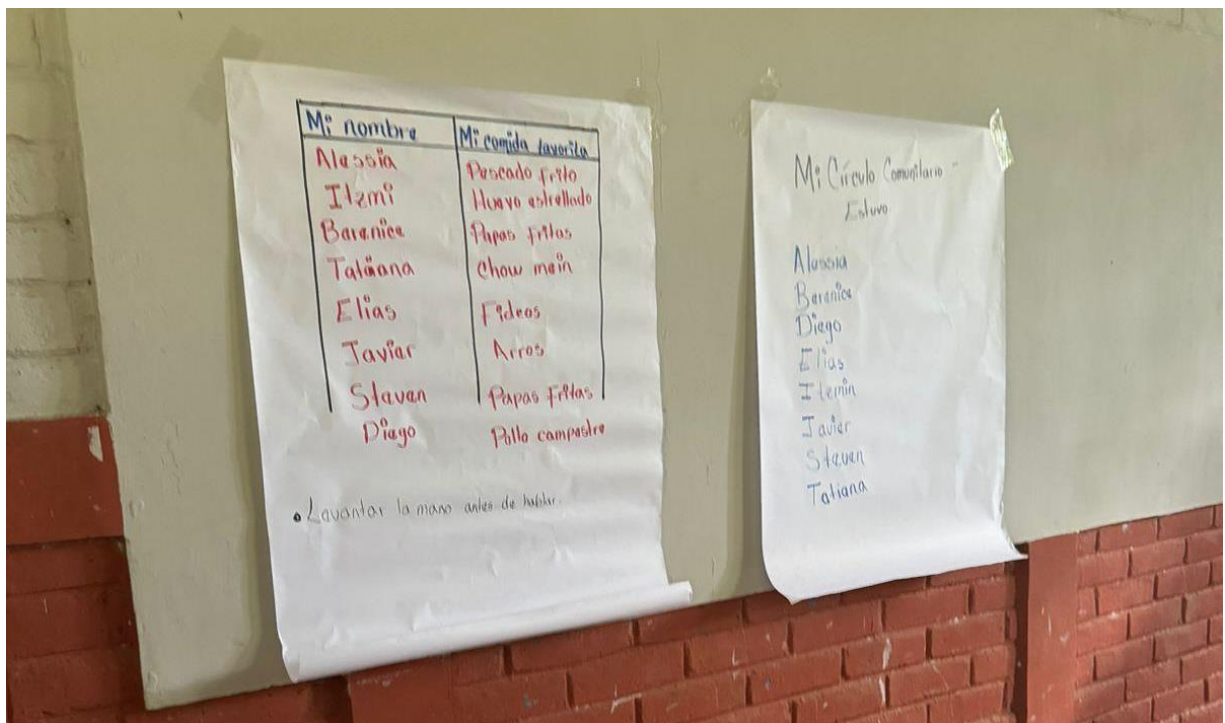 Mi nombre Mi comida favorita
Alessia Pescado frito
Itzmi Huevo estrellado
Berenice Papas fritas
Tatiana Chow mein
Elias Fideos
Javier Arros
Steven Papas Fritas
Diego Pollo campestre
• Levantar la mano antes de hablar.
Mi Círculo Comunitario -
Estuvo
Alessia
Berenice
Diego
Elias
Itemin
Javier
Steven
Tatiana